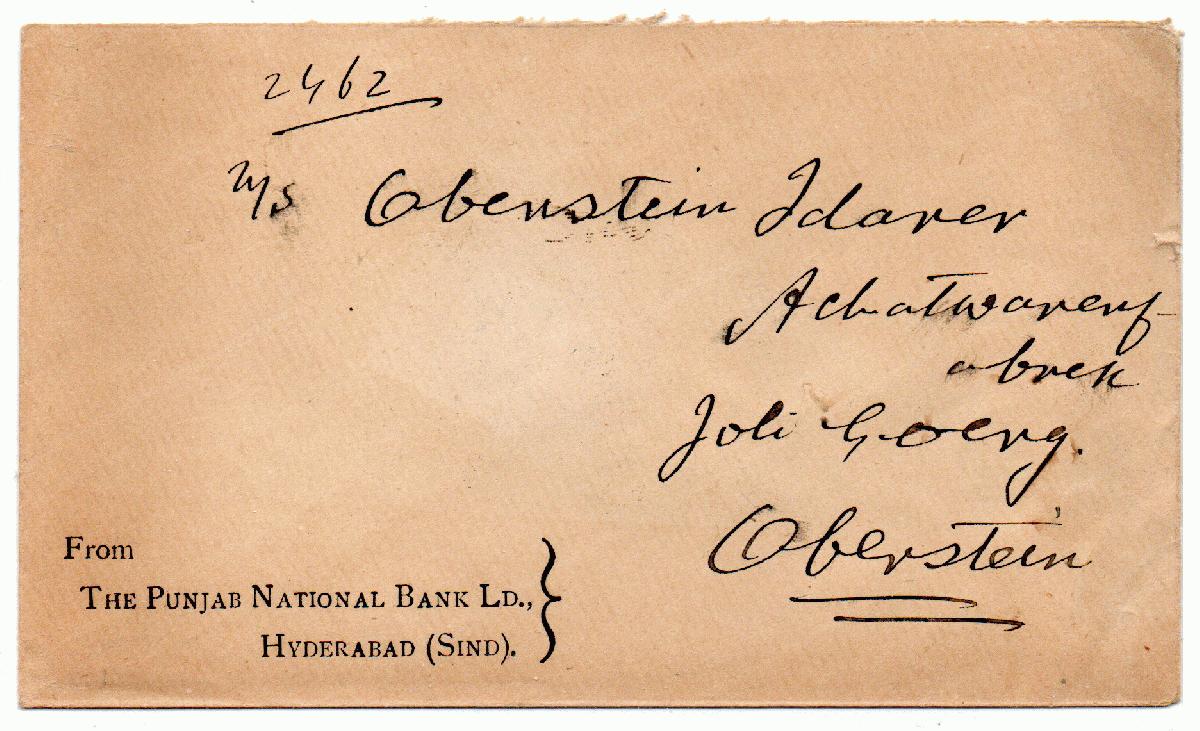 2462
M/s Oberstein Idarer
Achatwarenf-
abrek
Joli Goerg.
Oberstein
From
THE PUNJAB NATIONAL BANK LD.,
HYDERABAD (SIND).